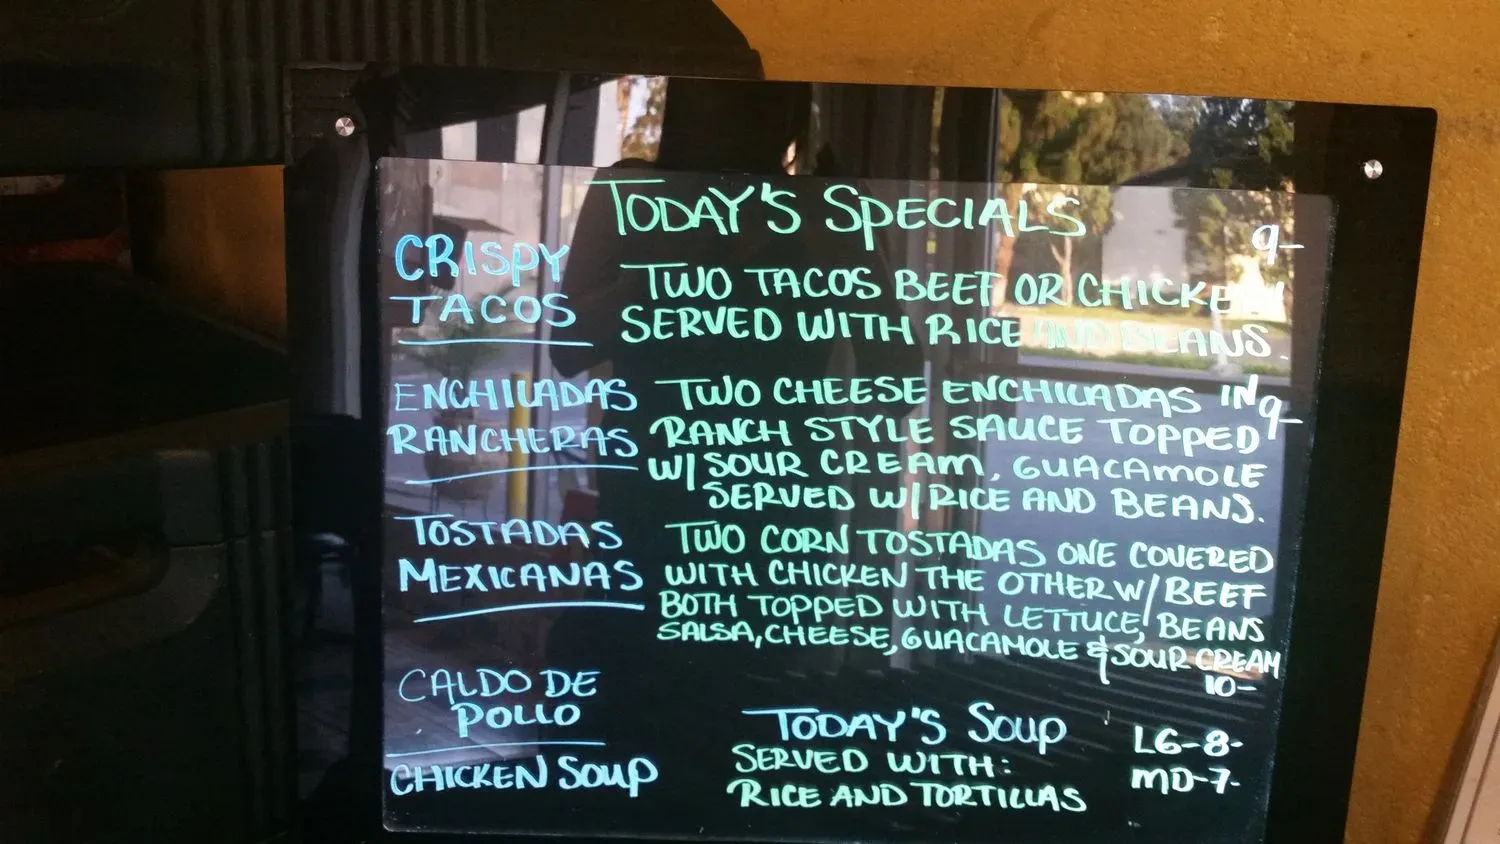 TODAY'S SPECIALS
CRISPY
TACOS
9-
TWO TACOS BEEF OR CHICKEN
SERVED WITH RICE AND BEANS.
ENCHILADAS
RANCHERAS
TWO CHEESE ENCHILADAS IN 9-
RANCH STYLE SAUCE TOPPED
W/SOUR CREAM, GUACAMOLE
SERVED W/RICE AND BEANS.
TOSTADAS
MEXICANAS
TWO CORN TOSTADAS ONE COVERED
WITH CHICKEN THE OTHER W/BEEF
BOTH TOPPED WITH LETTUCE, BEANS
SALSA, CHEESE, GUACAMOLE & SOUR CREAM
10-
CALDO DE
POLLO
CHICKEN SOUP
TODAY'S SOUP
SERVED WITH:
RICE AND TORTILLAS
LG-8-
MD-7-